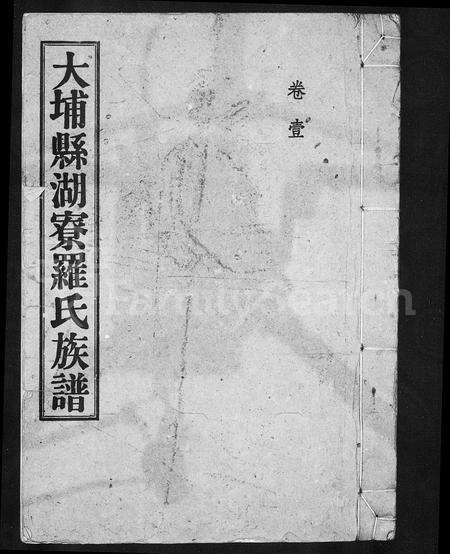 卷壹
大埔縣湖寮羅氏族譜
FamilySearch